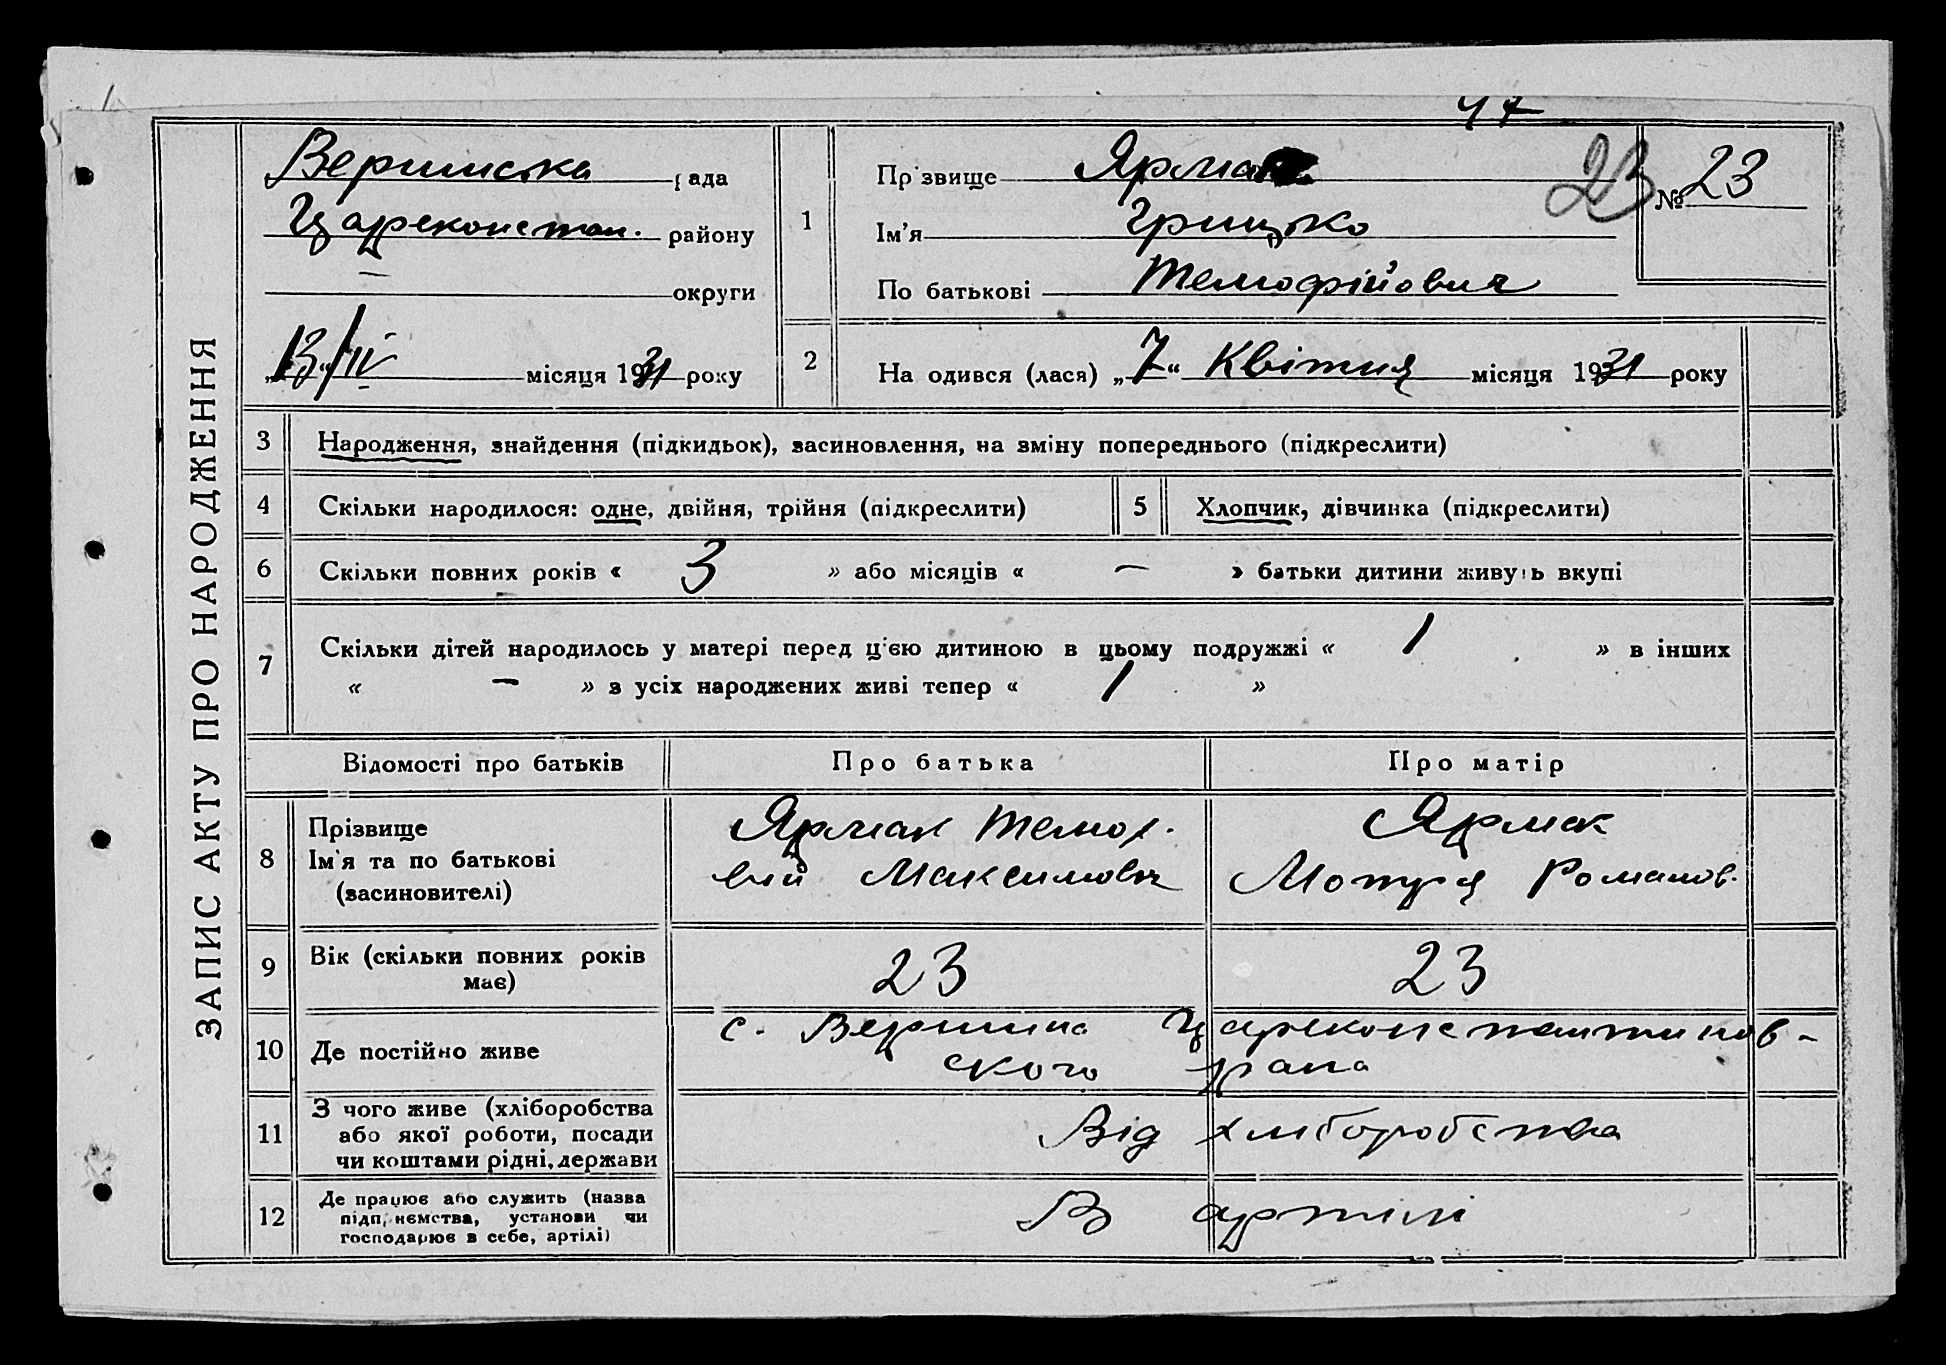 47
ЗАПИС АКТУ ПРО НАРОДЖЕННЯ
Вершинська рада
Цареконстан. району
— округи
„13“/IV місяця 1931 року
1
Прізвище Ярмак
Ім'я Грицько
По батькові Темофійович
23 № 23
2 Народився (лася) „7“ Квітня місяця 1931 року
3 Народження, знайдення (підкидьок), засиновлення, на зміну попереднього (підкреслити)
4 Скільки народилося: одне, двійня, трійня (підкреслити) 5 Хлопчик, дівчинка (підкреслити)
6 Скільки повних років « 3 » або місяців « — » батьки дитини живуть вкупі
7 Скільки дітей народилось у матері перед цією дитиною в цьому подружжі « 1 » в інших
« — » з усіх народжених живі тепер « 1 »
Відомості про батьків Про батька Про матір
8 Прізвище
Ім'я та по батькові
(засиновителі)
Ярмак Темох-
вий Максимович
Ярмак
Мотуря Романов.
9 Вік (скільки повних років
має)
23 23
10 Де постійно живе
с. Вершина Цареконстантинов-
ского рана
11 З чого живе (хліборобства
або якої роботи, посади
чи коштами рідні, держави
Від хліборобства
12 Де працює або служить (назва
підприємства, установи чи
господарює в себе, артілі)
В артілі